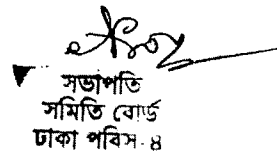 সভাপতি
সমিতি বোর্ড
ঢাকা পবিস-৪